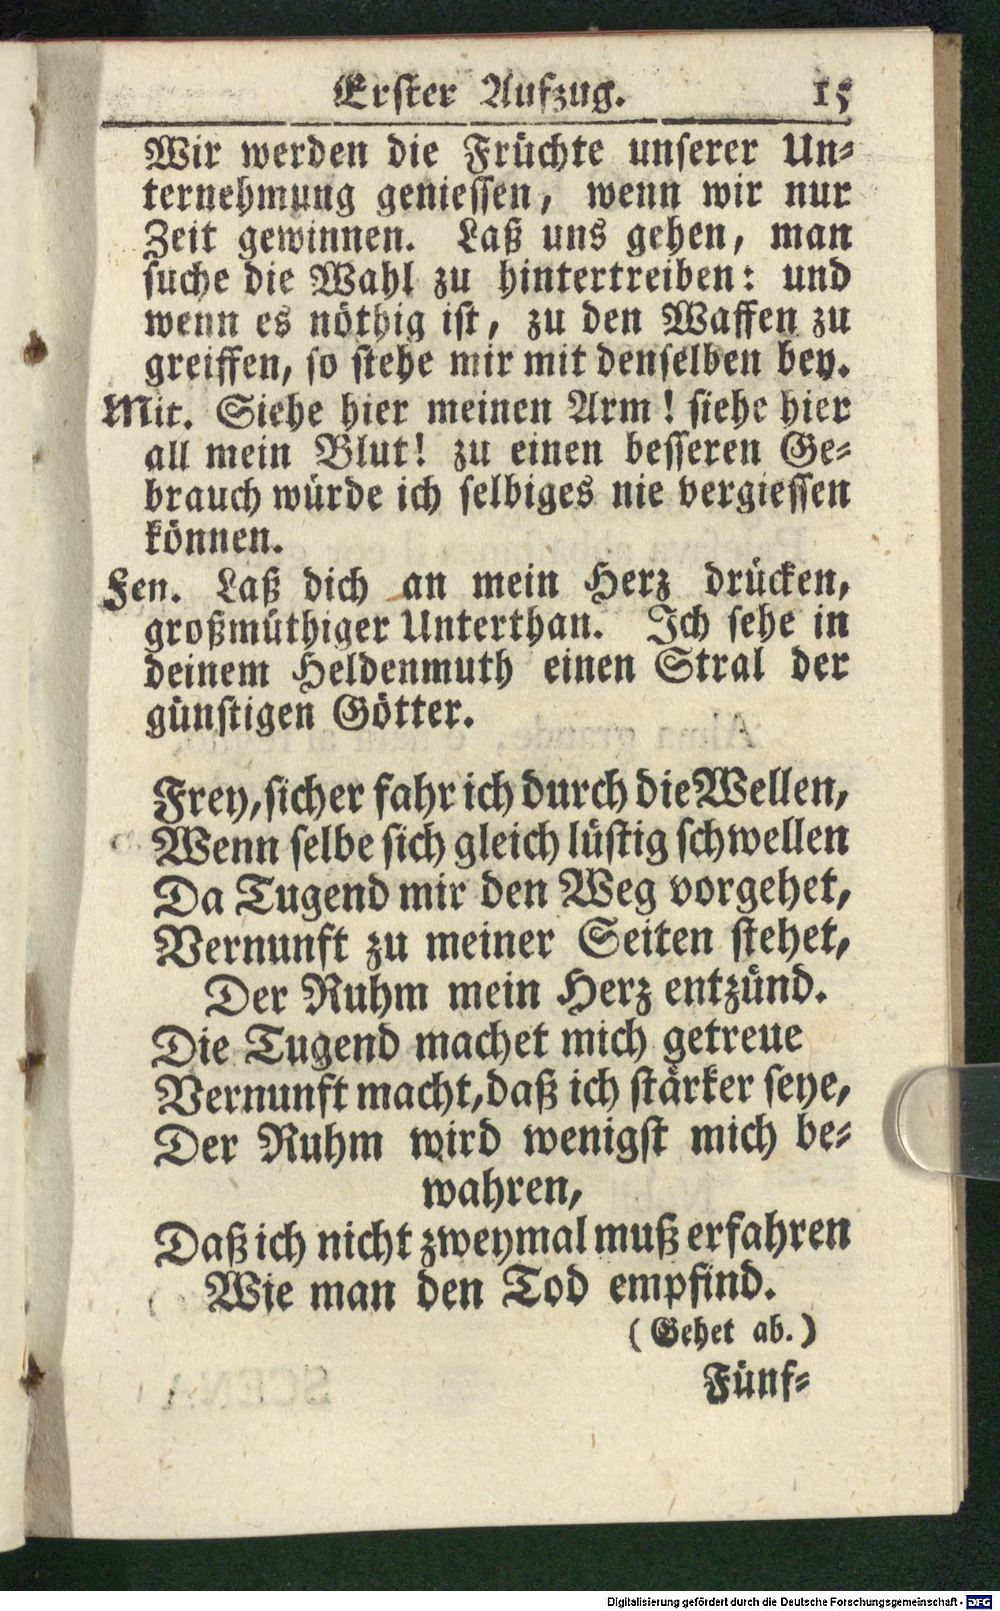 Erster Aufzug. 15
Wir werden die Früchte unserer Un-
ternehmung geniessen, wenn wir nur
Zeit gewinnen. Laß uns gehen, man
suche die Wahl zu hintertreiben: und
wenn es nöthig ist, zu den Waffen zu
greiffen, so stehe mir mit denselben bey.
Mit. Siehe hier meinen Arm! siehe hier
all mein Blut! zu einen besseren Ge-
brauch würde ich selbiges nie vergiessen
können.
Fen. Laß dich an mein Herz drücken,
großmüthiger Unterthan. Ich sehe in
deinem Heldenmuth einen Stral der
günstigen Götter.
Frey, sicher fahr ich durch die Wellen,
Wenn selbe sich gleich lüstig schwellen
Da Tugend mir den Weg vorgehet,
Vernunft zu meiner Seiten stehet,
Der Ruhm mein Herz entzünd.
Die Tugend machet mich getreue
Vernunft macht, daß ich stärker seye,
Der Ruhm wird wenigst mich be-
wahren,
Daß ich nicht zweymal muß erfahren
Wie man den Tod empfind.
(Gehet ab.)
Fünf-
Digitalisierung gefördert durch die Deutsche Forschungsgemeinschaft - DFG